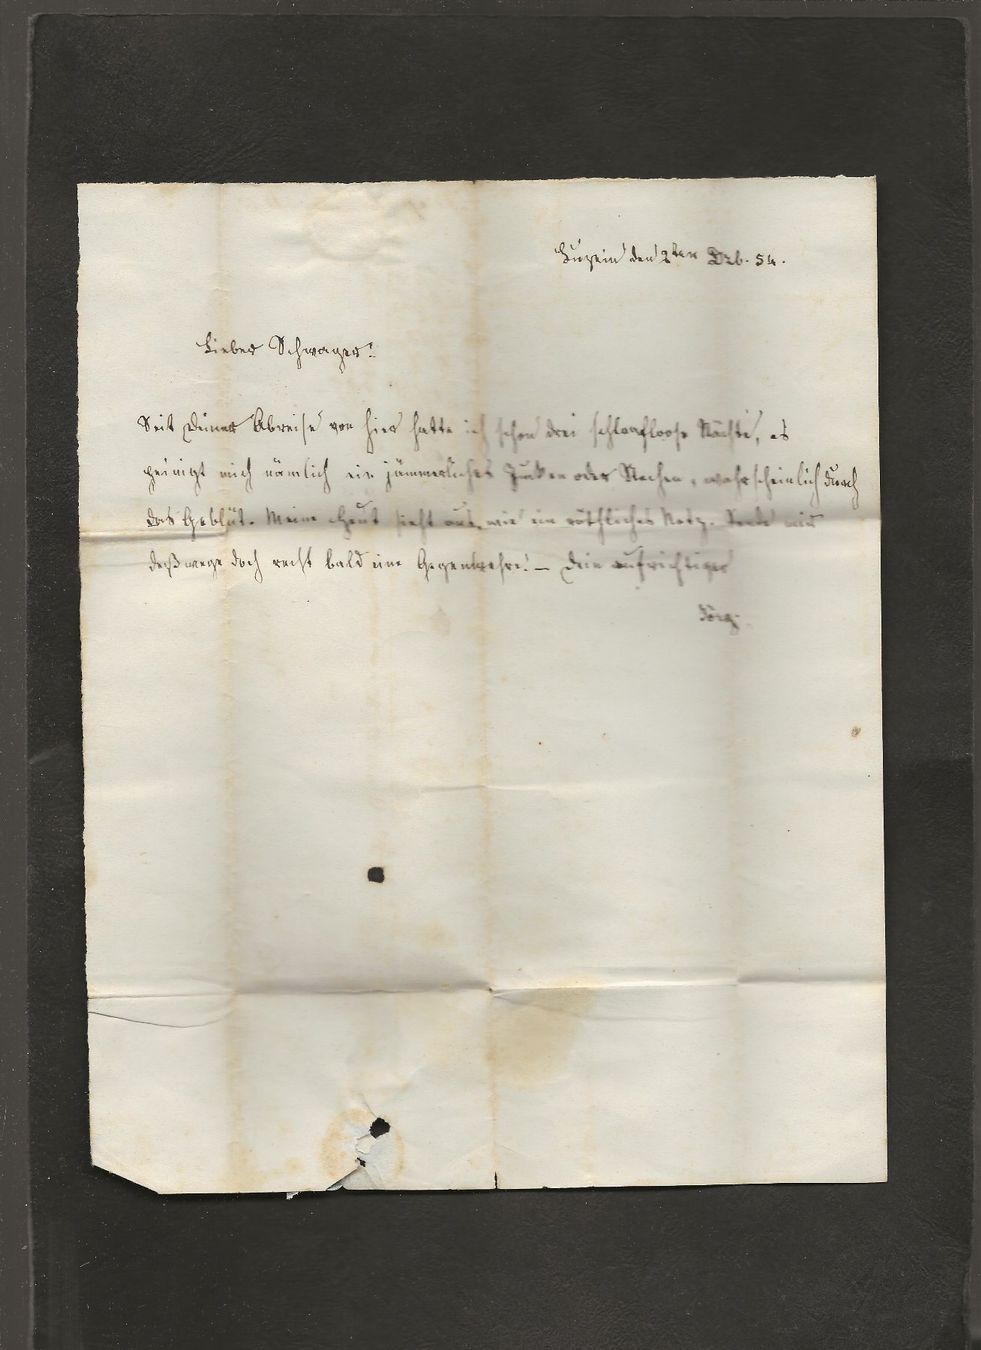 Luzein den 2ten Dzb. 54.
Lieber Schwager!
Seit Deiner Abreise von hier hatte ich schon drei schlaafloose Nächte, es
peinigt mich nämlich ein jämmerliches Jucken oder Stechen, wahrscheinlich durch
das Geblüt. Meine Haut sieht aus, wie ein röthliches Netz. Sende mir
deßwege doch recht bald eine Gegenwehre! – Dein aufrichtiger